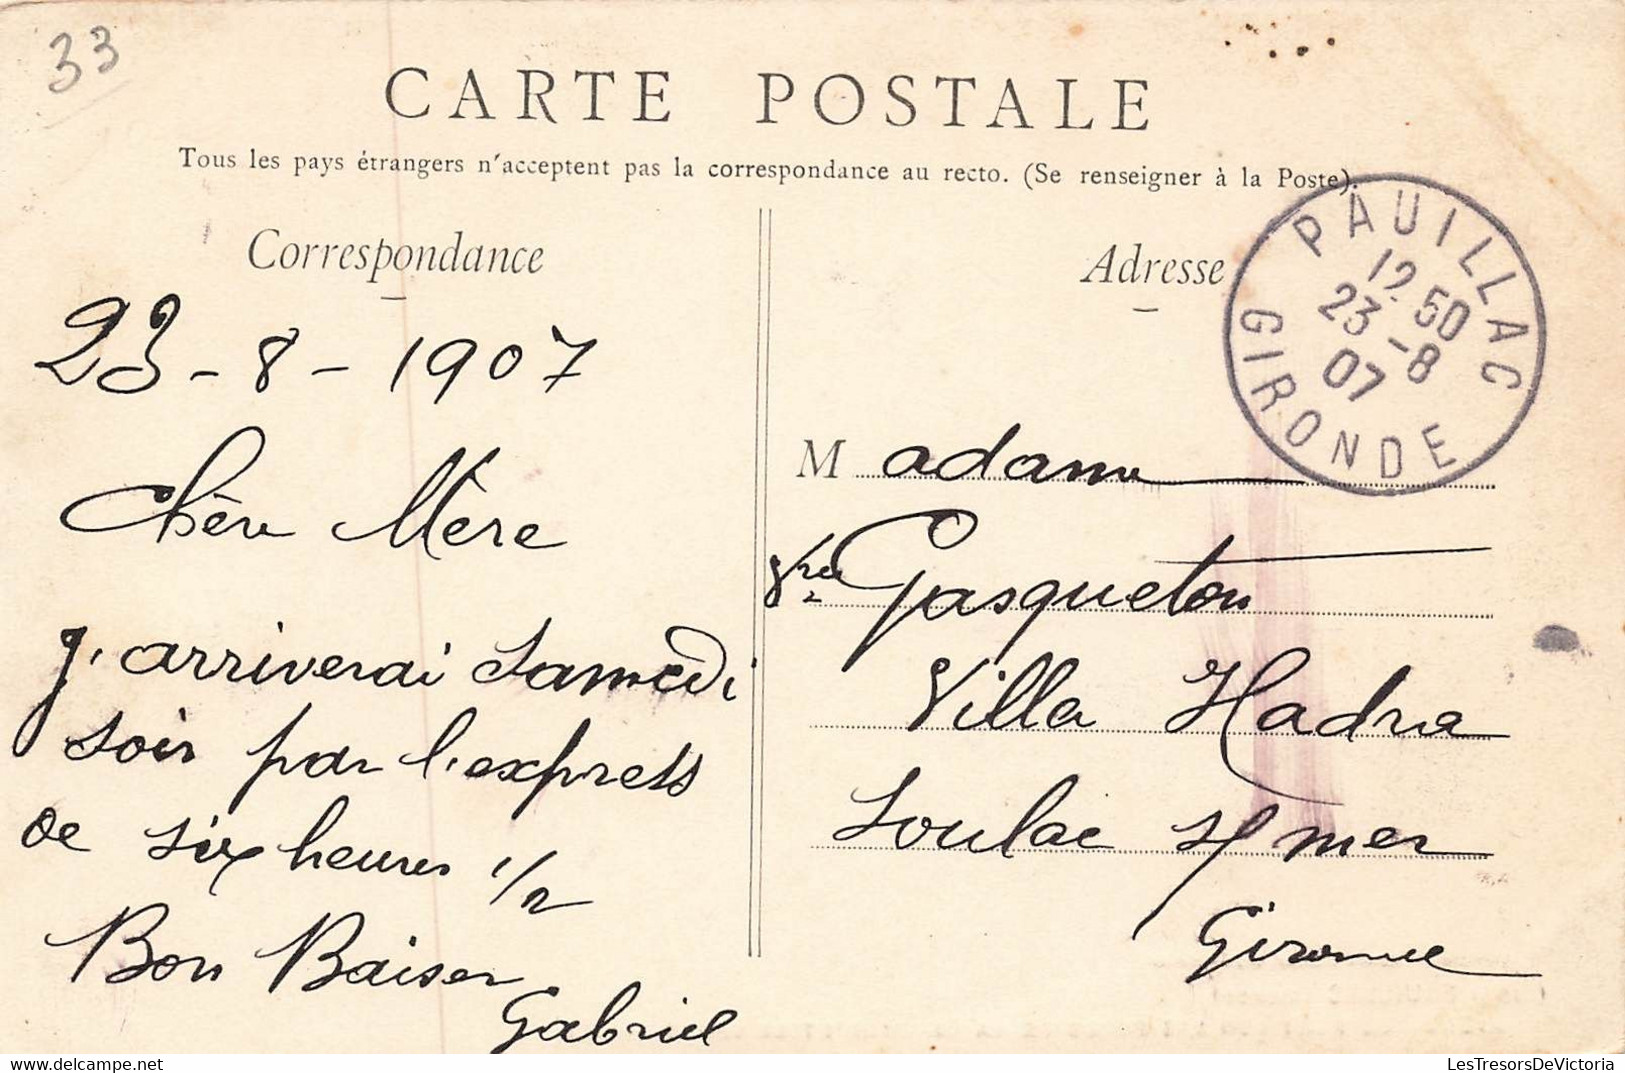 33
CARTE POSTALE
Tous les pays étrangers n'acceptent pas la correspondance au recto. (Se renseigner à la Poste).
Correspondance
23-8-1907
Chère Mère
J'arriverai Samedi
soir par l'express
de six heures 1/2
Bon Baiser
Gabriel
Adresse
PAUILLAC
12.50
23-8
07
GIRONDE
Madame
Vve Gasqueton
Villa Hadra
Soulac s/ mer
Gironde
LesTresorsDeVictoria